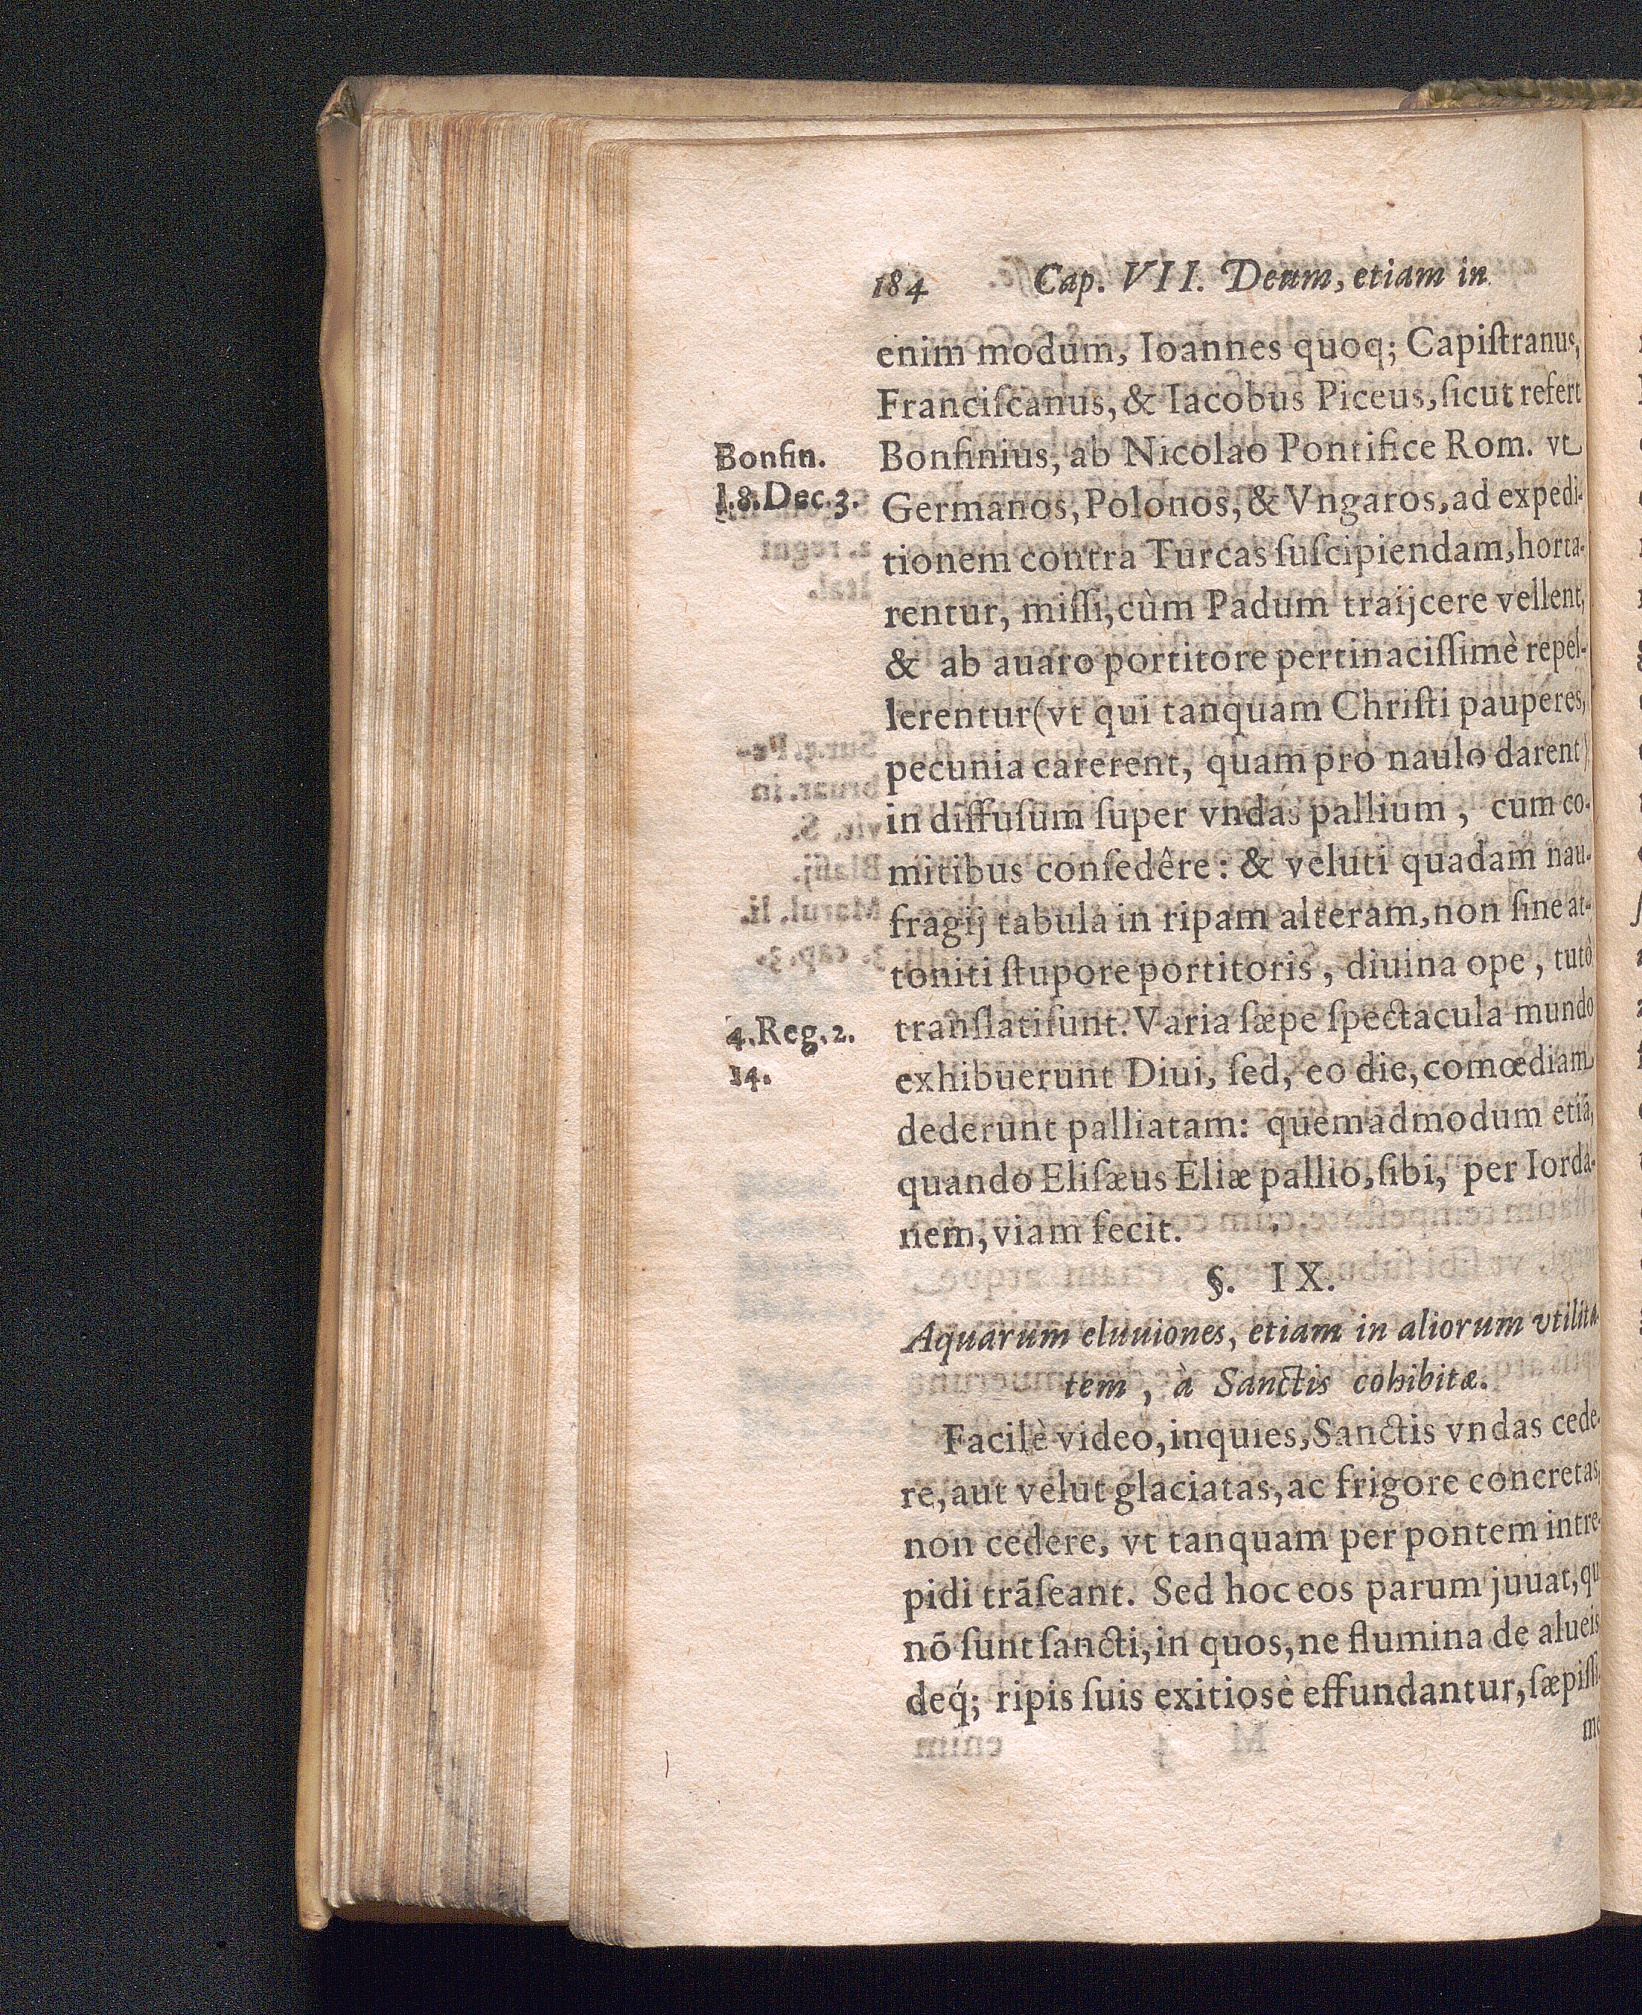 184 Cap. VII. Deum, etiam in
enim modum, Ioannes quoq; Capiſtranus,
Franciſcanus, & Iacobus Piceus, ſicut refert
Bonfin.
l.8. Dec. 3.
Bonfinius, ab Nicolao Pontifice Rom. vt
Germanos, Polonos, & Vngaros, ad expedi-
tionem contra Turcas ſuſcipiendam, horta-
rentur, miſſi, cùm Padum traijcere vellent,
& ab auaro portitore pertinaciſſimè repel-
lerentur (vt qui tanquam Chriſti pauperes,
pecunia carerent, quam pro naulo darent)
in diffuſum ſuper vndas pallium, cum co-
mitibus conſedêre: & veluti quadam nau-
fragij tabula in ripam alteram, non ſine at-
toniti ſtupore portitoris, diuina ope, tutò
4. Reg. 2.
14.
tranſlati ſunt. Varia ſæpe ſpectacula mundo
exhibuerunt Diui, ſed, eo die, comœdiam
dederunt palliatam: quemadmodum etiã,
quando Eliſæus Eliæ pallio, ſibi, per Iorda-
nem, viam fecit.
§. IX.
Aquarum eluuiones, etiam in aliorum vtilita-
tem, à Sanctis cohibitæ.
Facilè video, inquies, Sanctis vndas cede-
re, aut velut glaciatas, ac frigore concretas,
non cedere, vt tanquam per pontem intre-
pidi trãſeant. Sed hoc eos parum juuat, qu
nõ ſunt ſancti, in quos, ne flumina de alueis
deq́; ripis ſuis exitiosè effundantur, ſæpiſſi-
me